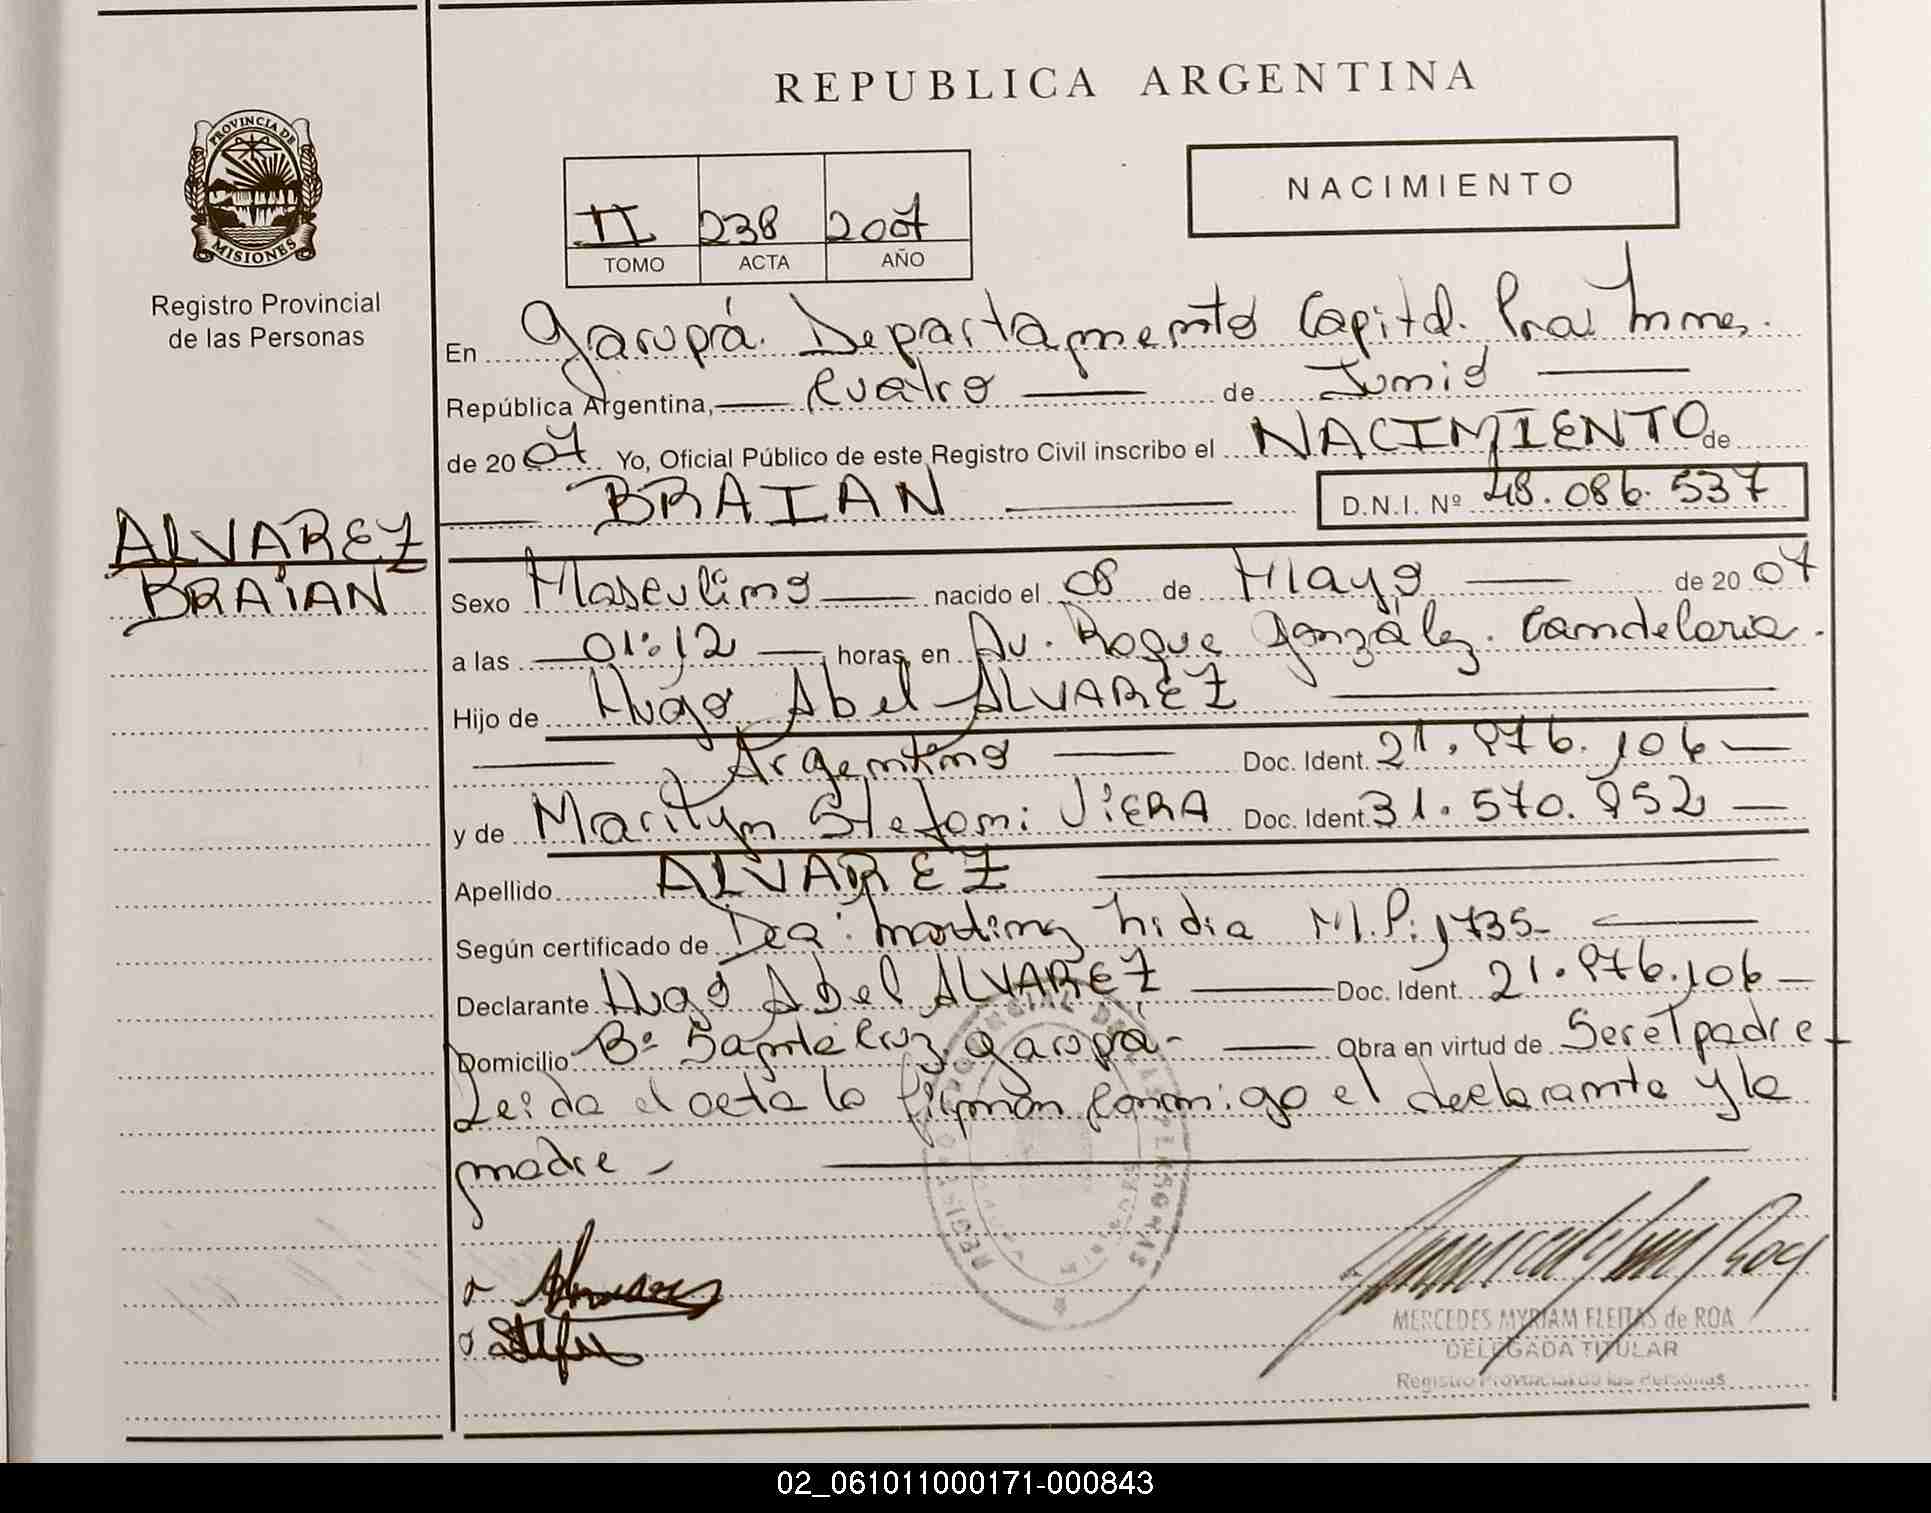 REPUBLICA ARGENTINA
PROVINCIA DE
MISIONES
Registro Provincial
de las Personas
NACIMIENTO
II 238 2007
TOMO ACTA AÑO
En Garupá. Departamento Capital.
República Argentina, Cuatro de Junio
de 2007 Yo, Oficial Público de este Registro Civil inscribo el NACIMIENTO de
BRAIAN D.N.I. Nº 48.086.537
ALVAREZ
BRAIAN
Sexo Masculino nacido el 08 de Mayo de 2007
a las 01:12 horas, en Av. Roque González. Candelaria.
Hijo de Hugo Abel ALVAREZ
Argentino Doc. Ident. 21.976.106
y de Marilyn Stefani VIERA Doc. Ident. 31.570.952
Apellido ALVAREZ
Según certificado de Dra. Martinez M.P. 1735
Declarante Hugo Abel ALVAREZ Doc. Ident. 21.976.106
Domicilio Bº Santa Cruz. Garupá- Obra en virtud de Ser el padre
Leida el acta la firman conmigo el declarante y la
madre
MERCEDES MYRIAM FLEITAS de ROA
DELEGADA TITULAR
Registro Provincial de las Personas
02_061011000171-000843